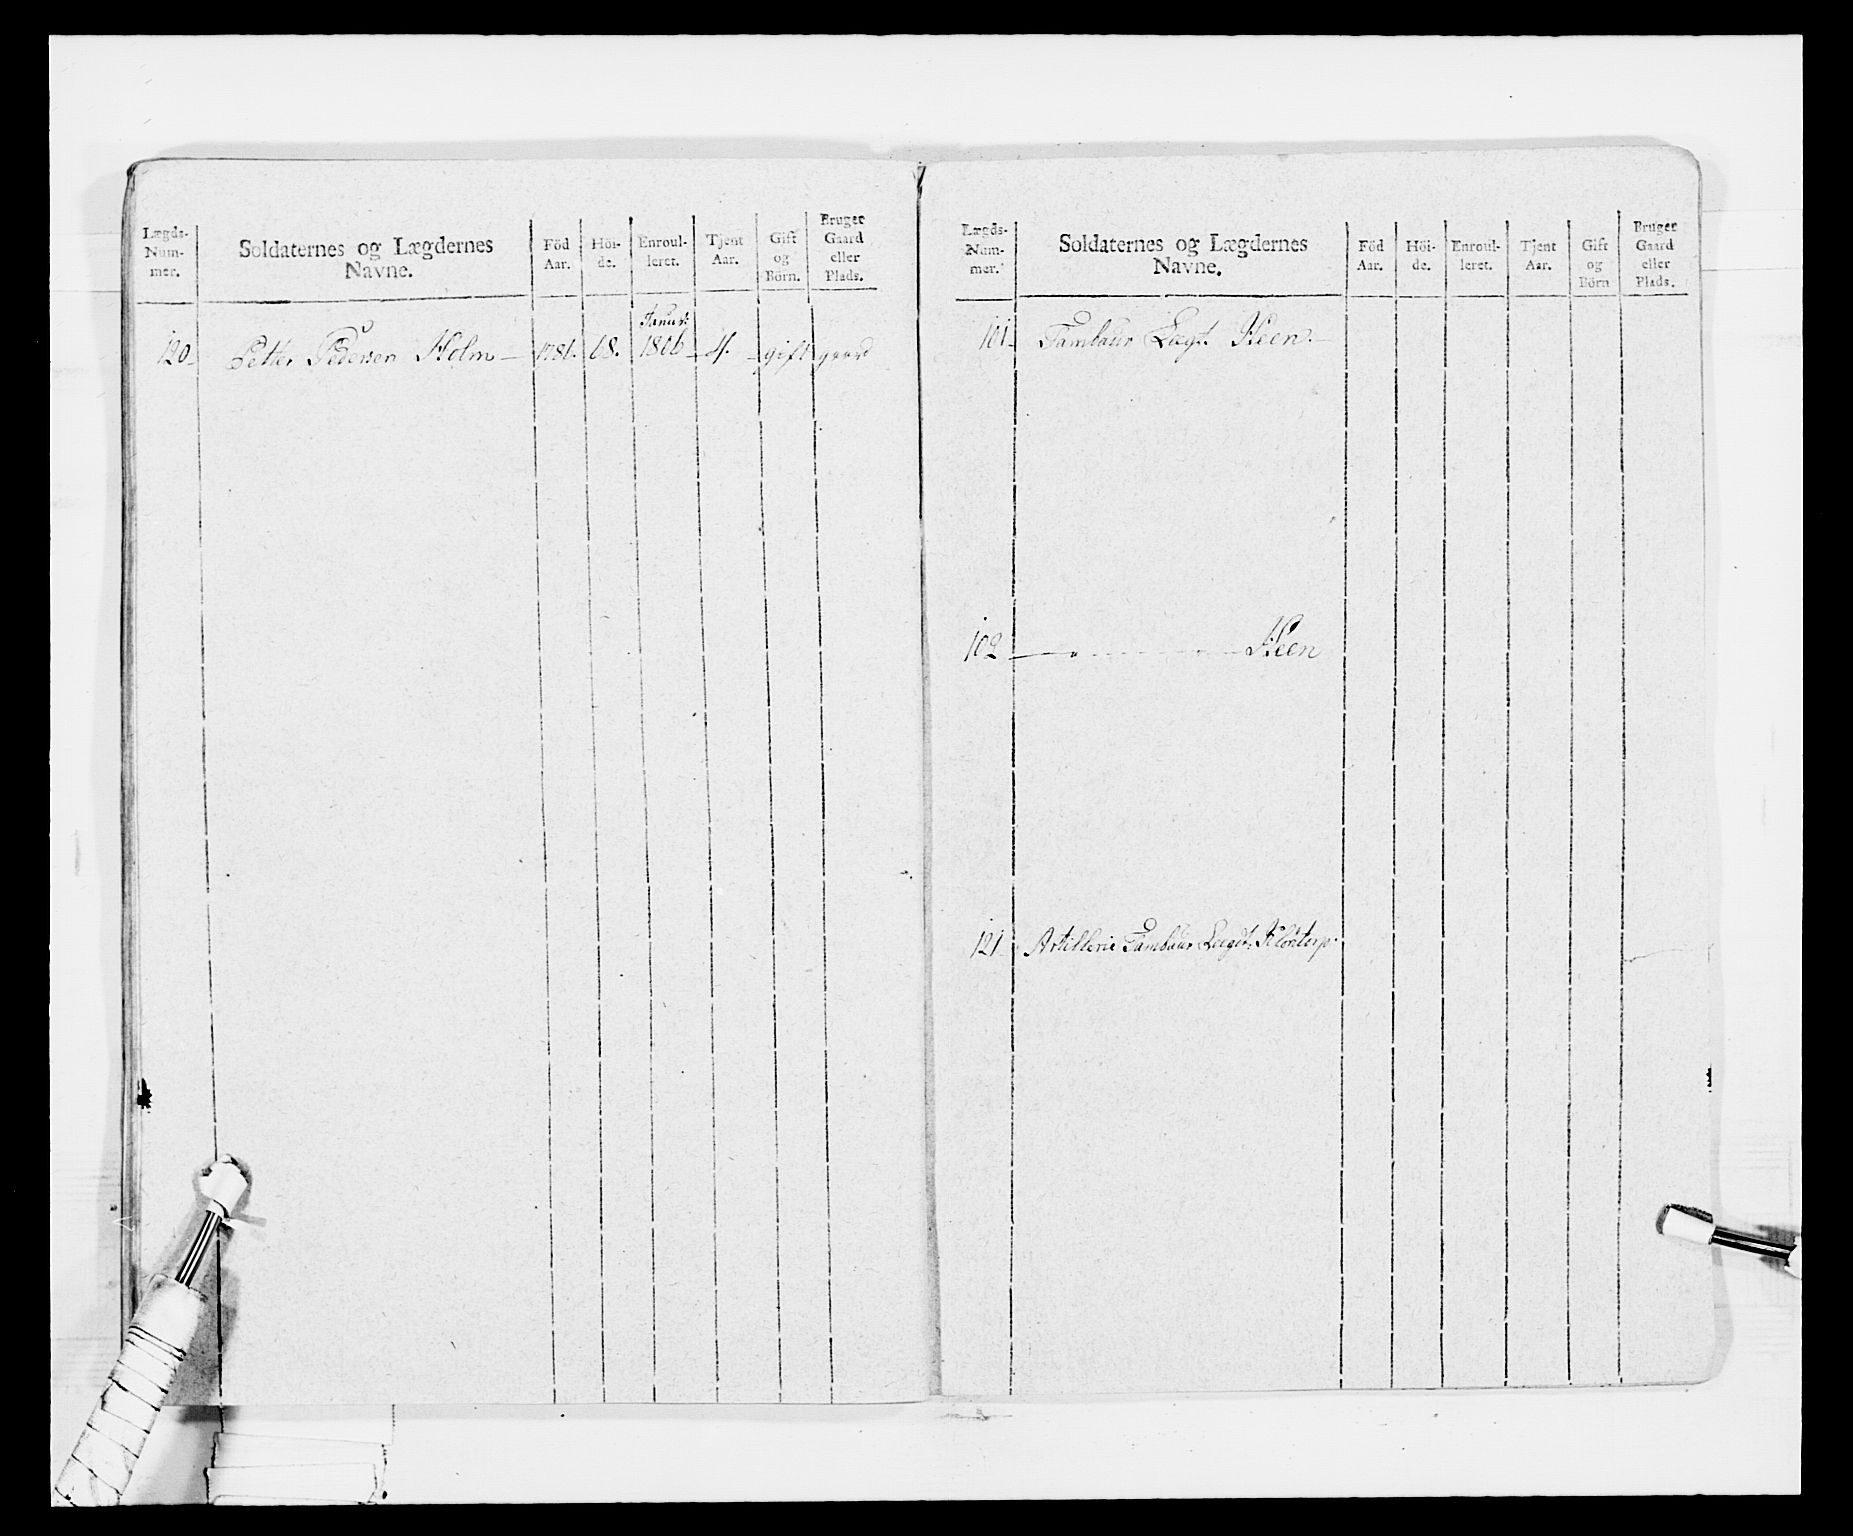 Lægds-
Num-
mer.
Soldaternes og Lægdernes
Navne.
Föd
Aar.
Höi-
de.
Enroul-
leret.
Tjent
Aar.
Gift
og
Börn.
Bruger
Gaard
eller
Plads.
Januar:
120 Petter Pedersen Holm 1781. 68. 1806 4. gift gaard
Lægds-
Num-
mer.
Soldaternes og Lægdernes
Navne.
Föd
Aar.
Höi-
de.
Enroul-
leret.
Tjent
Aar.
Gift
og
Börn
Bruger
Gaard
eller
Plads.
101 Tambour Lægt. Heen.
102 Heen
121 Artillerie Tambour Lægdt. Klöntorp.